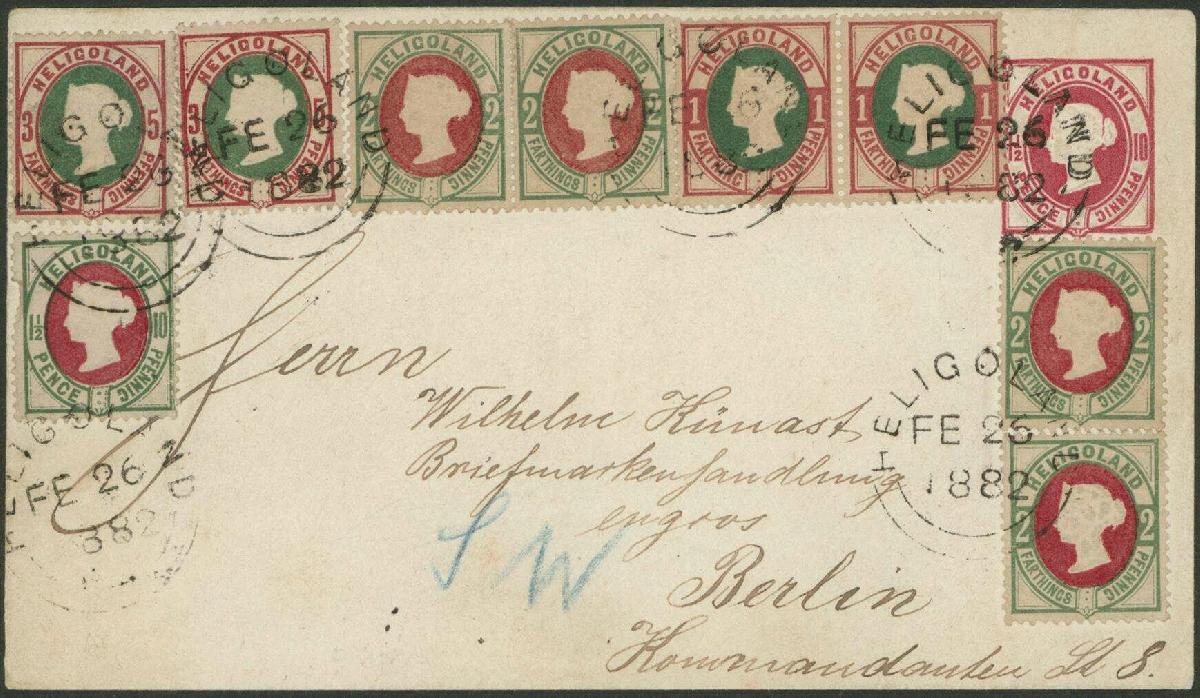 HELIGOLAND
3 5
FARTHINGS PFENNIG
HELIGOLAND
3 5
FARTHINGS PFENNIG
HELIGOLAND
2 2
FARTHINGS PFENNIG
HELIGOLAND
2 2
FARTHINGS PFENNIG
HELIGOLAND
1 1
FARTHINGS PFENNIG
HELIGOLAND
1 1
FARTHINGS PFENNIG
HELIGOLAND
1½ 10
PENCE PFENNIG
HELIGOLAND
FE 26
1882
HELIGOLAND
FE 26
1882
HELIGOLAND
FE 26
1882
HELIGOLAND
1½ 10
PENCE PFENNIG
HELIGOLAND
2 2
FARTHINGS PFENNIG
HELIGOLAND
2 2
FARTHINGS PFENNIG
HELIGOLAND
FE 26
1882
HELIGOLAND
FE 26
1882
Herrn
Wilhelm Künast
Briefmarkenhandlung
engros
Berlin
Kommandanten St 8.
SW